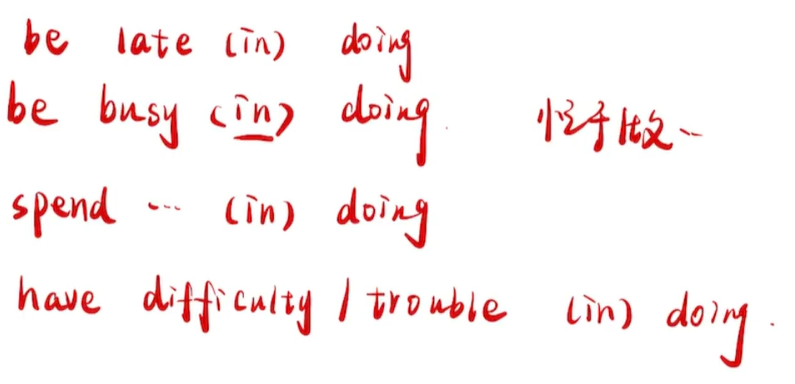 be late (in) doing
be busy (in) doing. 忙于做…
spend … (in) doing
have difficulty / trouble (in) doing.